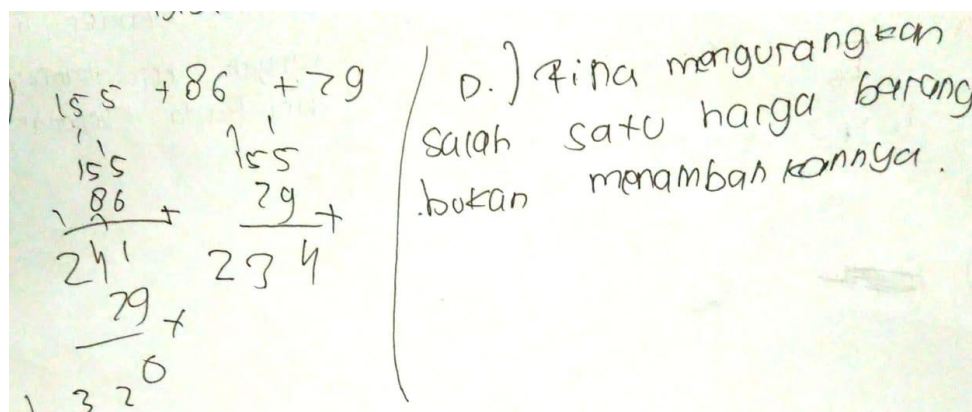 155 + 86 + 79
155
86 +
241
79 +
320
155
79 +
234
D.) Rina mengurangkan
salah satu harga barang
bukan menambahkannya.